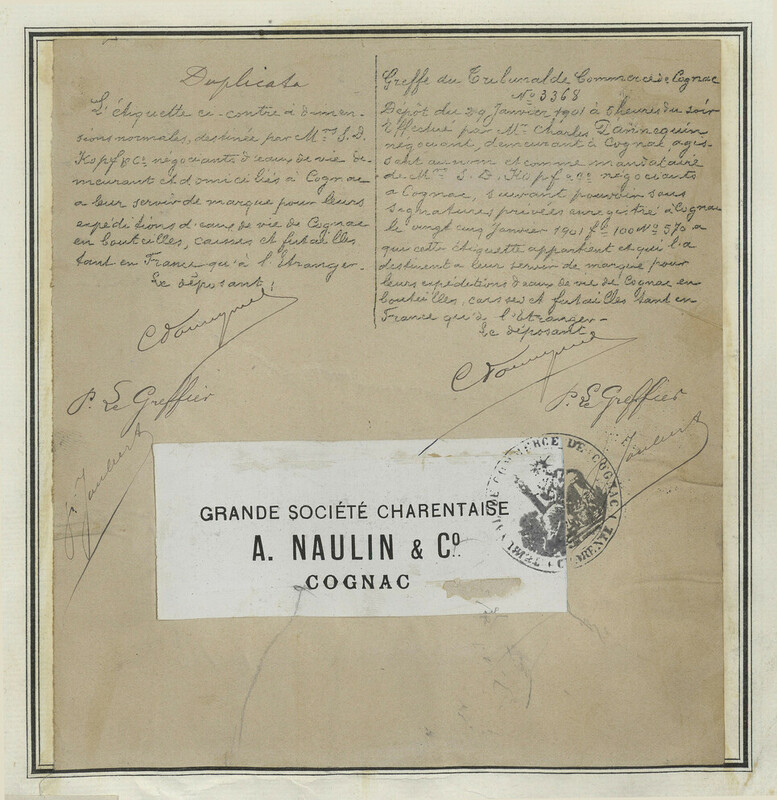 Duplicata
L'étiquette ci-contre à dimen-
sions normales, destinée par Mrs S. D.
Kopf & Cie négociants d'eaux de vie de-
meurant et domiciliés à Cognac
a leur servir de marque pour leurs
expéditions d'eaux de vie de Cognac
en bouteilles, caisses et futailles
tant en France qu'à l'Étranger-
Le déposant:
P. Le Greffier
Joubert
Greffe du Tribunal de Commerce de Cognac
No 3368
Dépôt du 29 Janvier 1901 à 5 heures du soir
Effectué par Mr Charles Dannequin
négociant, demeurant à Cognac, agis-
sant au nom et comme mandataire
de Mrs S. D. Kopf & Cie négociants
a Cognac, suivant pouvoir sous
signatures privées enregistré à Cognac
le vingt cinq Janvier 1901 fo 100 No 570 a
qui cette étiquette appartient et qui l'a
destinent a leur servir de marque pour
leurs expéditions d'eaux de vie de Cognac en
bouteilles, caisses et futailles tant en
France que de l'Etranger-
Le déposant
P. Le Greffier
Joubert
GRANDE SOCIÉTÉ CHARENTAISE
A. NAULIN & Co.
COGNAC
DE COMMERCE DE COGNAC
CHARENTE